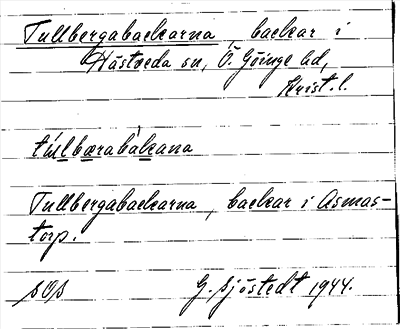 Tullbergabackarna, backar i
Hästveda sn, Ö. Göinge hd,
Krist. l.
túlbærabàkana
Tullbergabackarna, backar i Asmas-
torp.
G. Sjöstedt 1944.